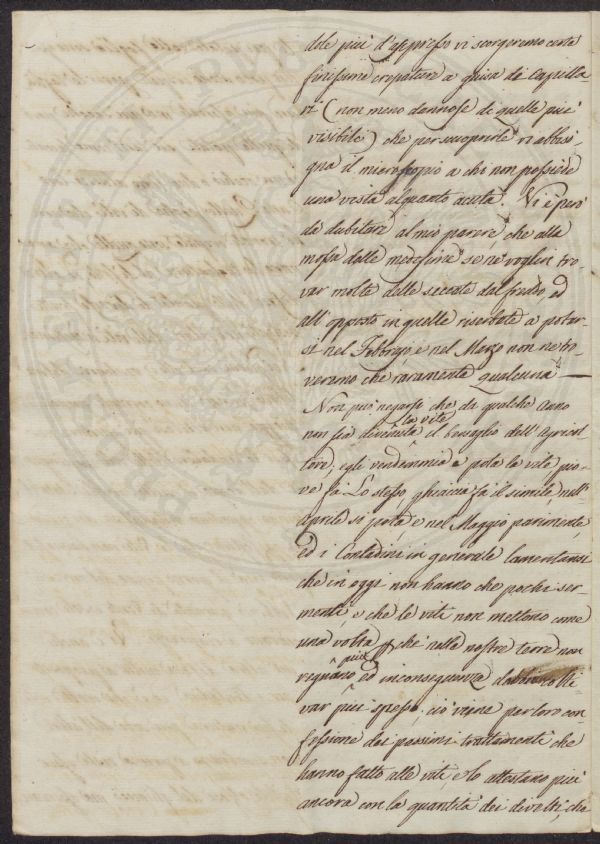 dole più d'appresso vi scorgeremo certe
finissime crepature a guisa di Capilla-
ri (non meno dannose di quelle più
visibili) che per scuoprirle vi abbiso-
gna il microscopio a chi non possiede
una vista alquanto acuta. Vi è però
da dubitare al mio parere, che alla
mossa delle medesime se ne voglin tro-
var molte delle seccate dal freddo, ed
all'opposto in quelle riserbate a potar-
si nel Febbrajo e nel Marzo non ne tro-
veremo che raramente qualcuna —
Non può negarsi che da qualche anno
non sia divenuta la vite il bersaglio dell'Agricol-
tore; egli vendemmia e pota la vite pio-
ve fà lo stesso, ghiaccia fà il simile, nell'
Aprile si pota e nel Maggio parimente,
ed i Contadini in generale lamentansi
che in oggi non hanno che pochi ser-
menti, e che le viti non mettono come
una volta, che nelle nostre terre non
regnano più ed in conseguenza colti-
var più spesso; ciò viene per loro con-
fessione dai pessimi trattamenti che
hanno fatto alle viti, e lo attestano più
ancora con la quantità dei divelti, che